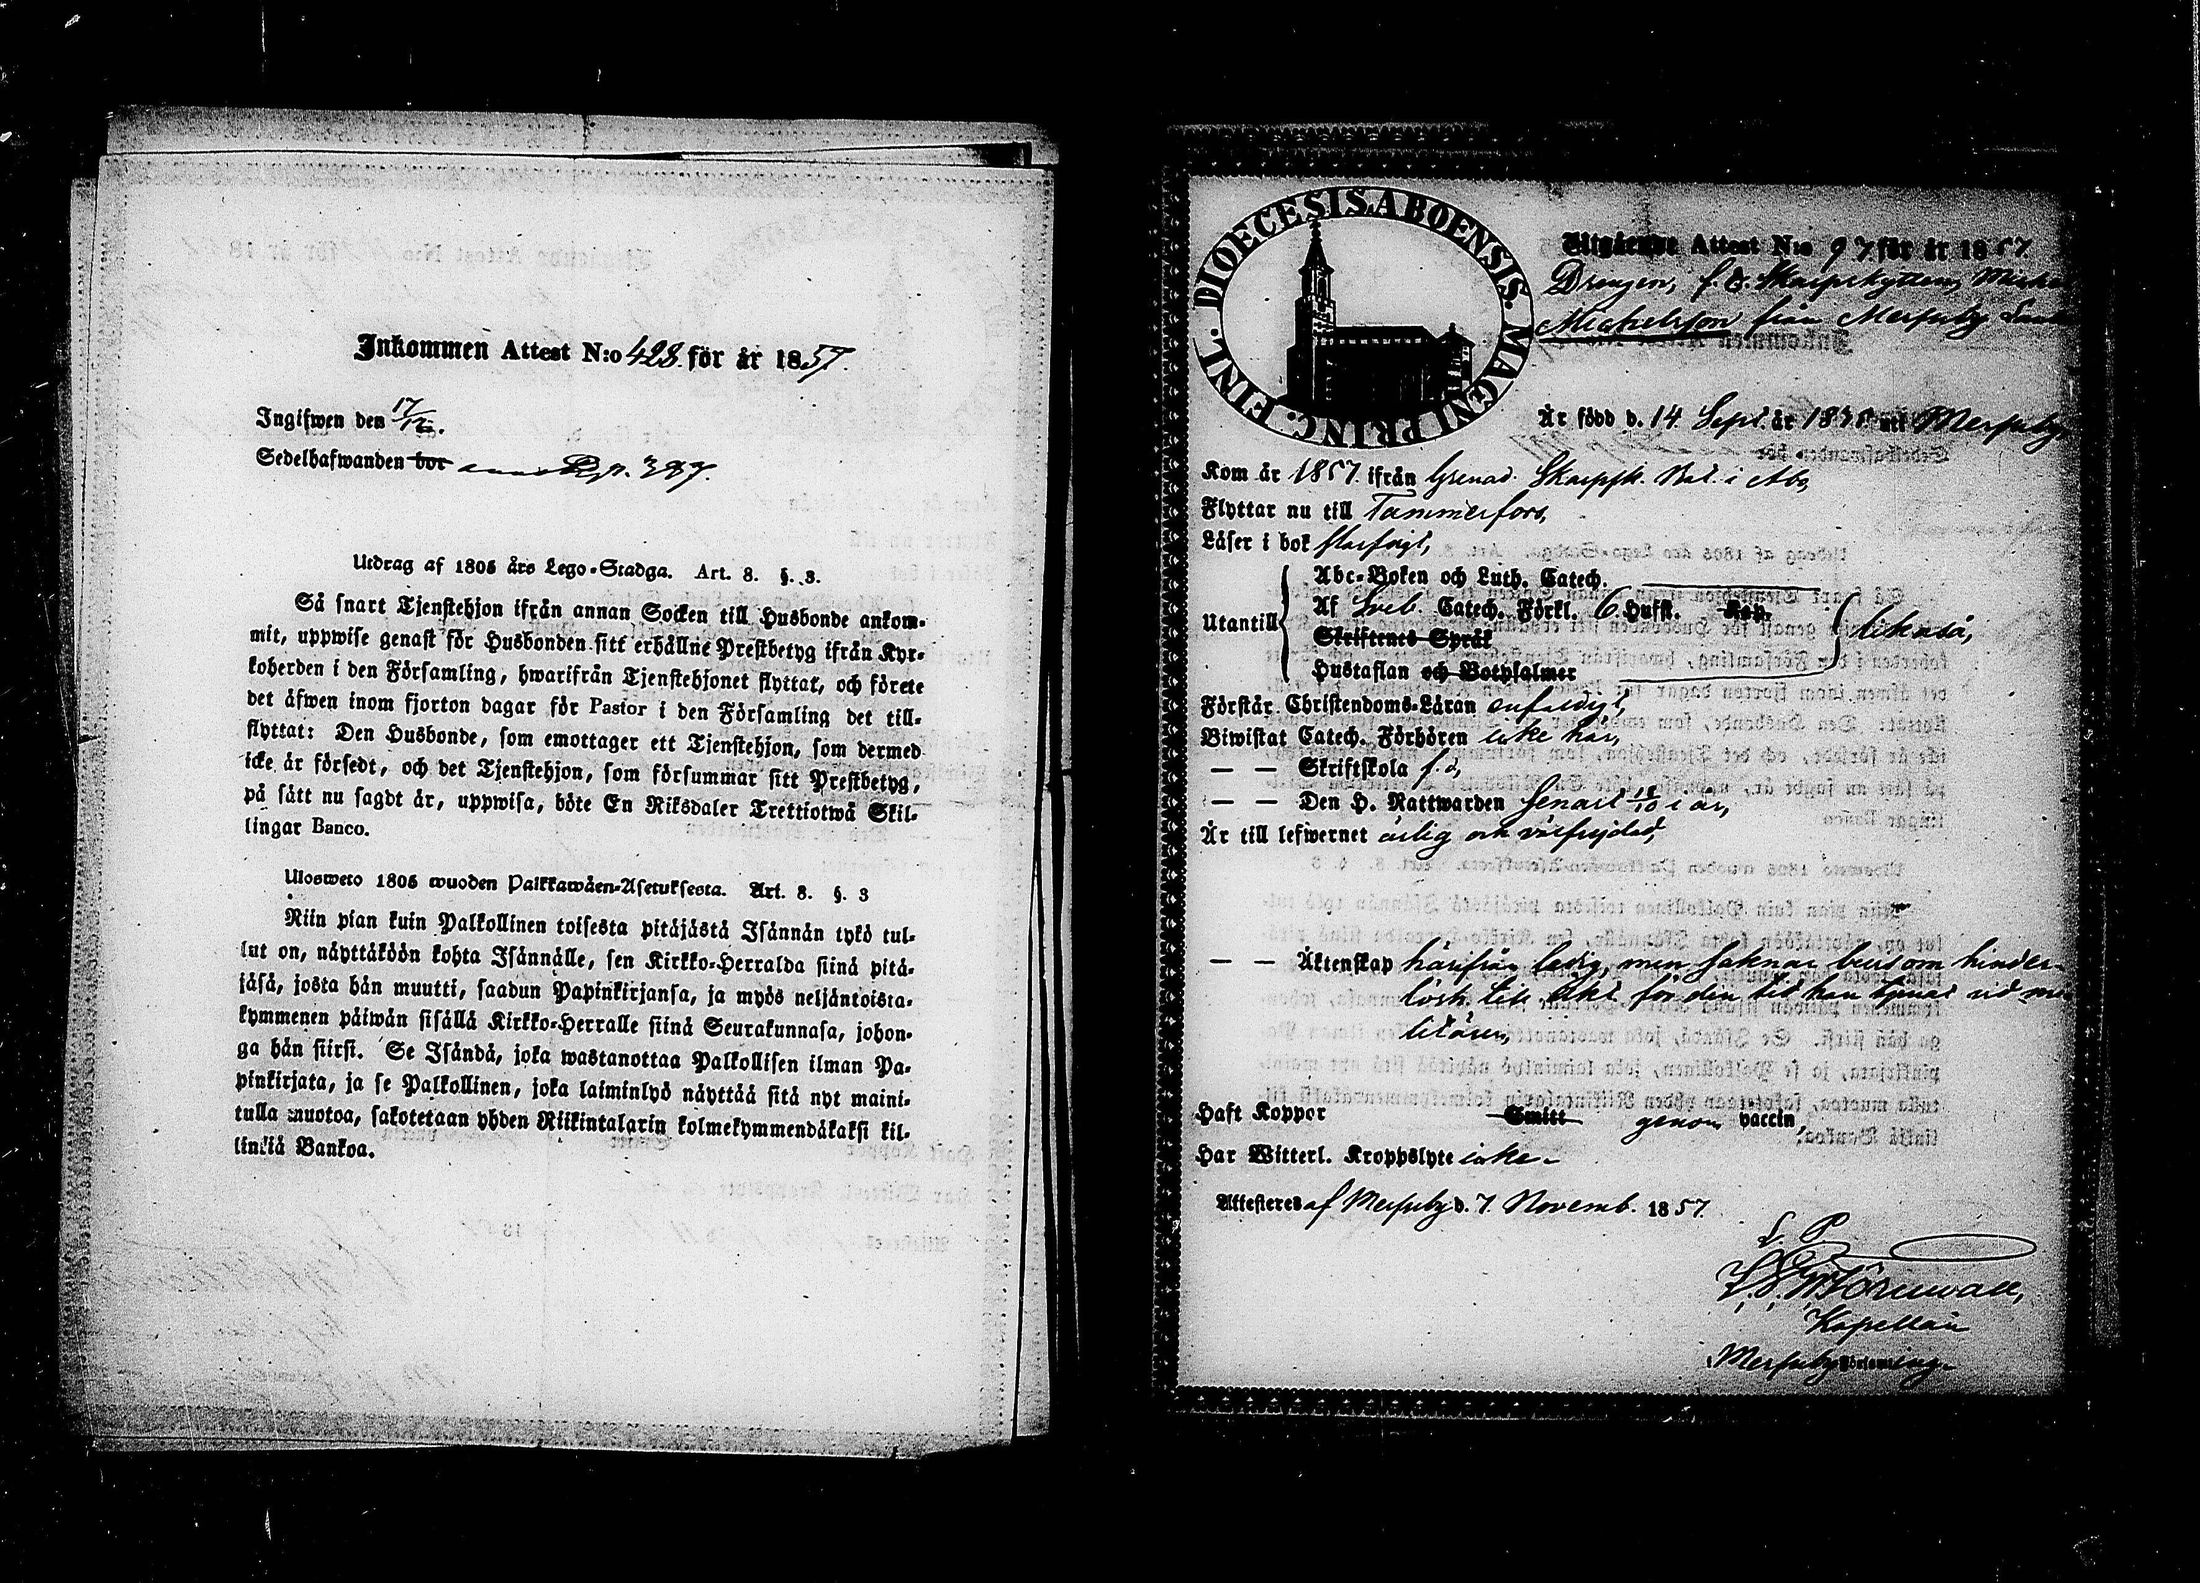 Inkommen Attest N:o 428. för år 1857.
Ingifwen den 17/12.
Sedelhafwanden bor 387.
Utdrag af 1805 års Lego-Stadga. Art. 8. §. 3.
Så snart Tjenstehjon ifrån annan Socken till Husbonde ankom-
mit, uppwise genast för Husbonden sitt erhållne Prestbetyg ifrån Kyr-
koherden i den Församling, hwarifrån Tjenstehjonet flyttat, och förete
det äfwen inom fjorton dagar för Pastor i den Församling det till-
flyttat: Den Husbonde, som emottager ett Tjenstehjon, som dermed
icke är försedt, och det Tjenstehjon, som försummar sitt Prestbetyg,
på sätt nu sagdt är, uppwisa, böte En Riksdaler Trettiotwå Skil-
lingar Banco.
Ulosweto 1805 wuoden Palkkawäen-Asetuksesta. Art. 8. §. 3
Niin pian kuin Palkollinen toisesta pitäjästä Isännän tykö tul-
lut on, näyttäköön kohta Isännälle, sen Kirkko-Herralda siinä pitä-
jäsä, josta hän muutti, saadun Papinkirjansa, ja myös neljäntoista-
kymmenen päiwän sisällä Kirkko-Herralle siinä Seurakunnasa, johon-
ga hän siirsi. Se Isändä, joka wastanottaa Palkollisen ilman Pa-
pinkirjata, ja se Palkollinen, joka laiminlyö näyttää sitä nyt maini-
tulla muotoa, sakotetaan yhden Riikintalarin kolmekymmendäkaksi kil-
lingiä Bankoa.
DIOECESIS ABOENSIS. MAGNI PRINC. FINL.
Utgående Attest N:o 97 för år 1857
Drengen, f. d. Skarpskytten,
Michelsson från Merjuby
Är född d. 14 Sept. år uti Merjuby
Kom år 1857. ifrån Grenad. Skarpsk. Bat. i Åbo,
Flyttar nu till Tammerfors,
Läser i bok
Utantill
Abc-Boken och Luth. Catech.
Af Sveb. Catech. Förkl. 6 Hufst. Kap.
Skriftenes Språk
Hustaflan och Botpsalmer
likaså,
Förstår Christendoms-Läran enfaldigt,
Biwistat Catech. Förhören icke här,
— — Skriftskola f. d,
— — Den H. Nattwarden senast 18/10 i år,
Är till lefwernet ärlig och välfrejdad,
— — Äktenskap härifrån ledig, men saknar bevis om hinder-
lösh. till äkt. för den tid han tjenat vid mi-
litären,
Haft Koppor Smitt genom vaccin,
Har Witterl. Kroppslyte icke.
Attesteras af Merjuby d. 7. Novemb. 1857.
L. P.
Kapellan
Merjuby Församling.